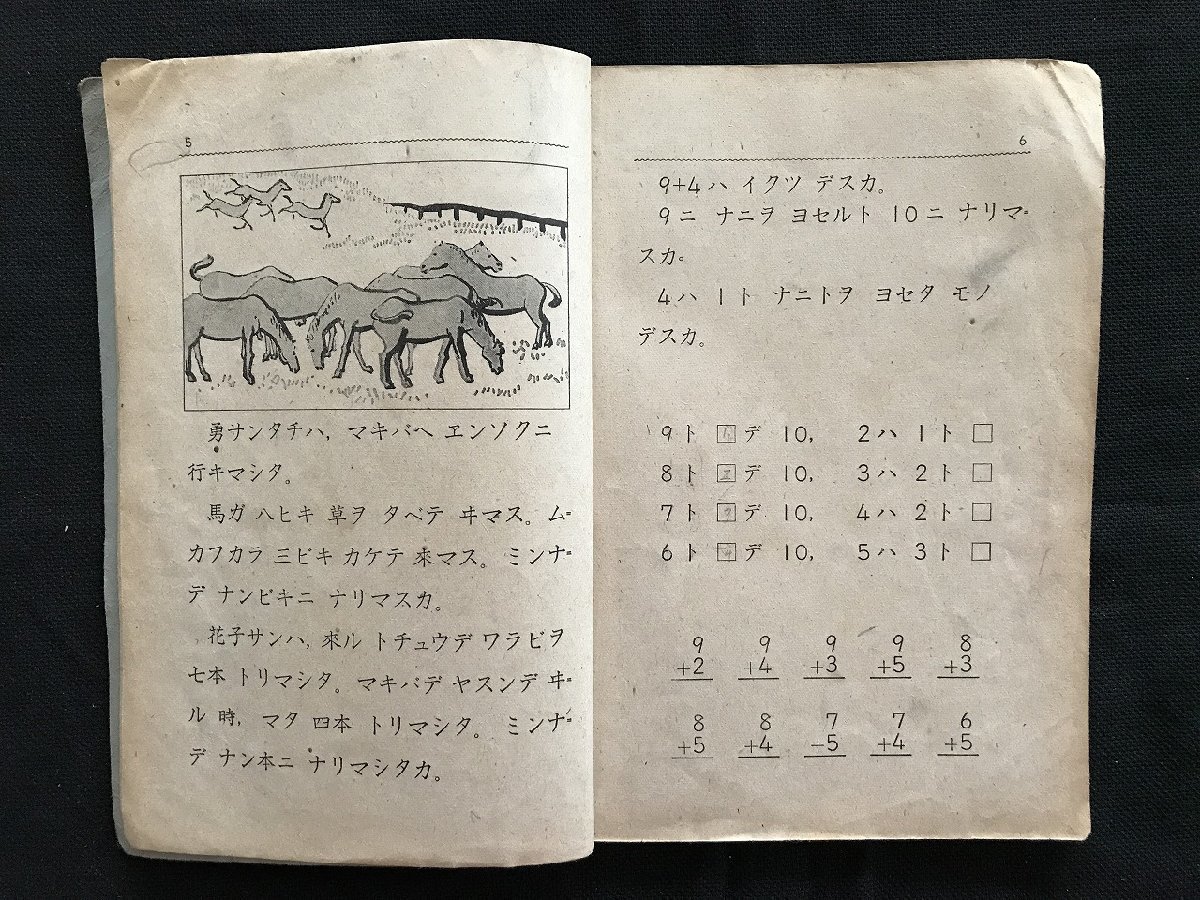 5
勇サンタチハ，マキバヘ エンソクニ
行キマシタ。
馬ガ 八ヒキ 草ヲ タベテ ヰマス。ム゠
カフカラ 三ビキ カケテ 來マス。ミンナ゠
デ ナンビキニ ナリマスカ。
花子サンハ，來ル トチュウデ ワラビヲ
七本 トリマシタ。マキバデ ヤスンデ ヰ゠
ル 時，マタ 四本 トリマシタ。ミンナ゠
デ ナン本ニ ナリマシタカ。
6
9+4ハ イクツ デスカ。
9ニ ナニヲ ヨセルト 10ニ ナリマ゠
スカ。
4ハ 1ト ナニトヲ ヨセタ モノ
デスカ。
9ト □デ 10， 2ハ 1ト □
8ト □デ 10， 3ハ 2ト □
7ト □デ 10， 4ハ 2ト □
6ト □デ 10， 5ハ 3ト □
9 9 9 9 8
+2 +4 +3 +5 +3
8 8 7 7 6
+5 +4 −5 +4 +5